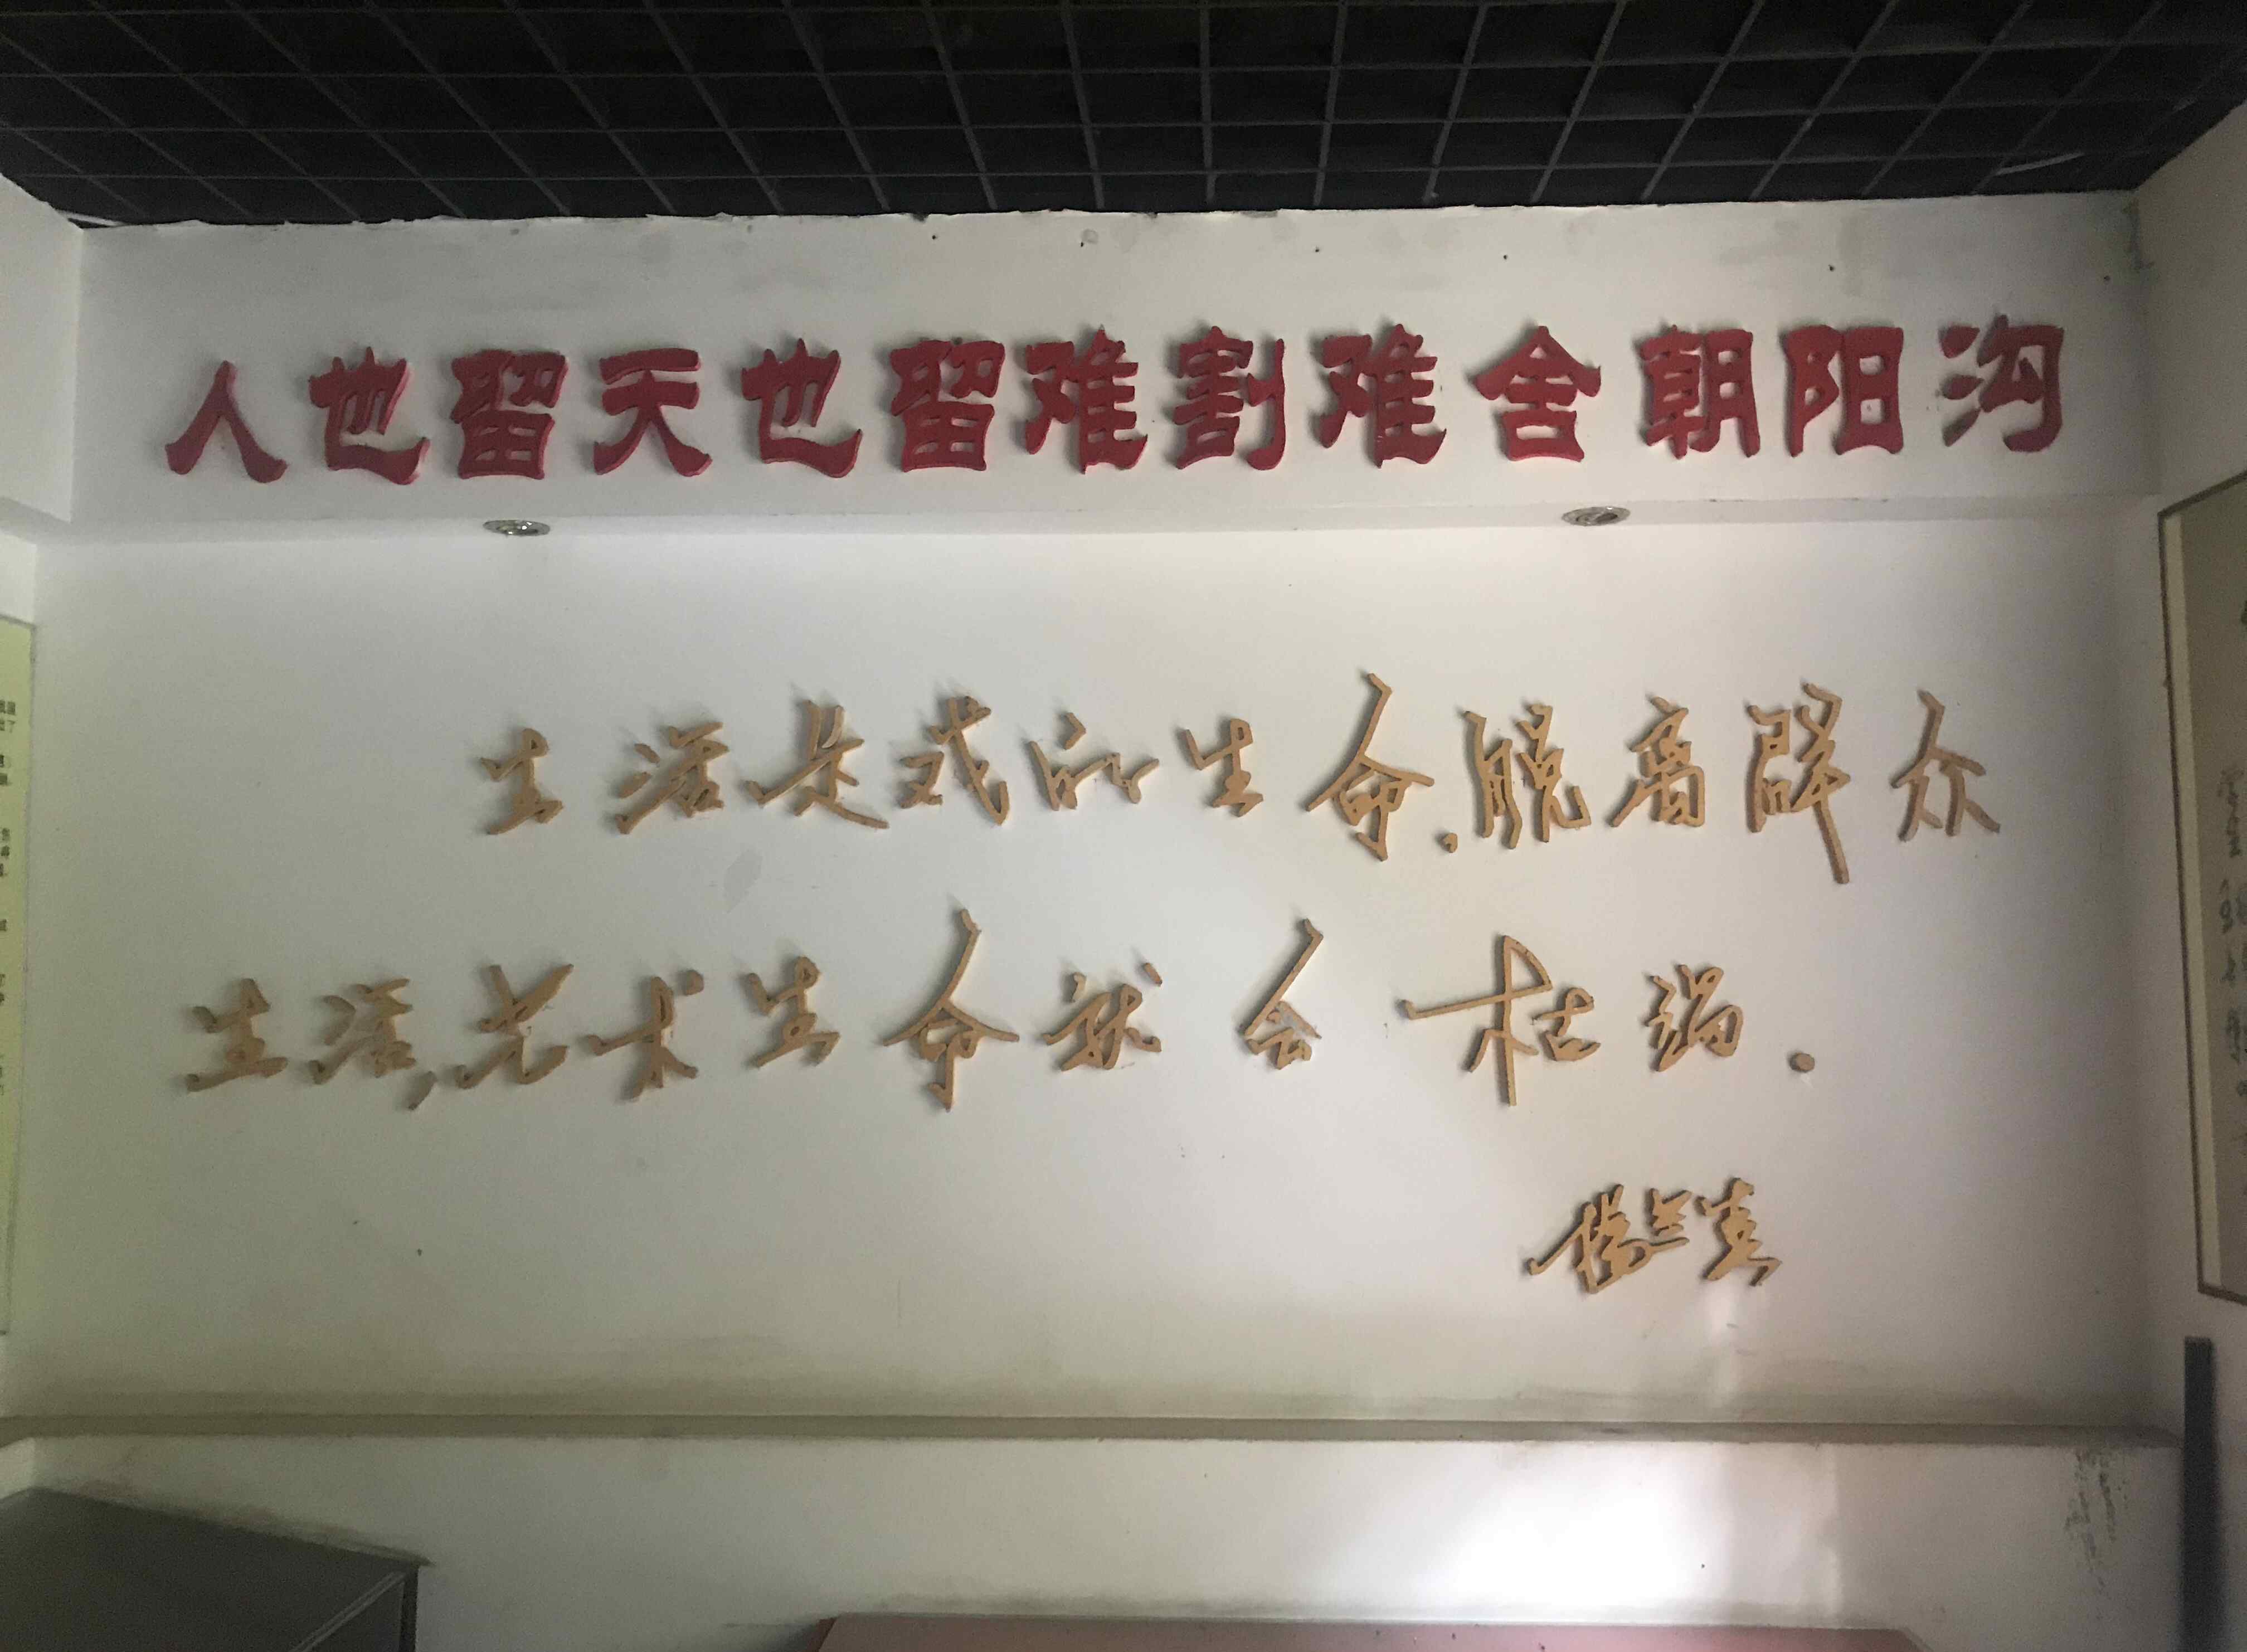 人也留天也留难割难舍朝阳沟
生活是戏的生命.脱离群众
生活,艺术生命就会枯竭.
杨兰春